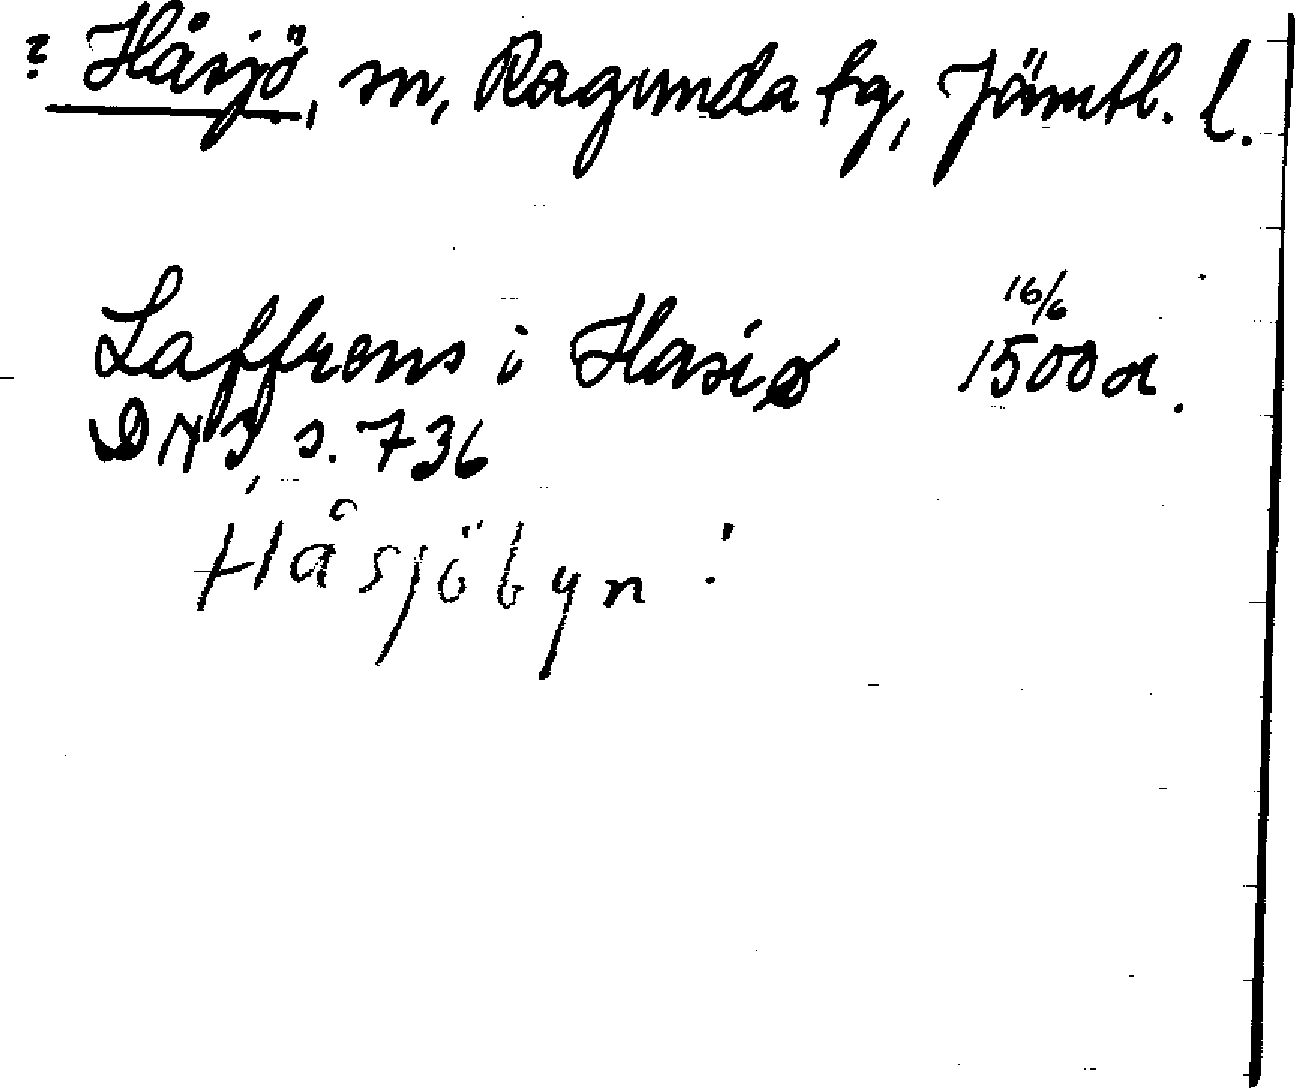 ? Håsjö, sn, Ragunda tg, Jämtl. l.
Laffrens i Hasiø 16/6 1500 or.
DN 3, s. 736
Håsjöbyn!